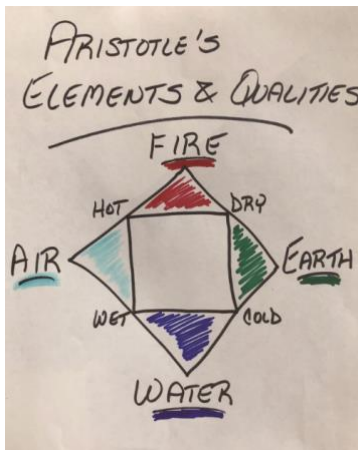 ARISTOTLE'S
ELEMENTS & QUALITIES
FIRE
HOT DRY
AIR EARTH
WET COLD
WATER